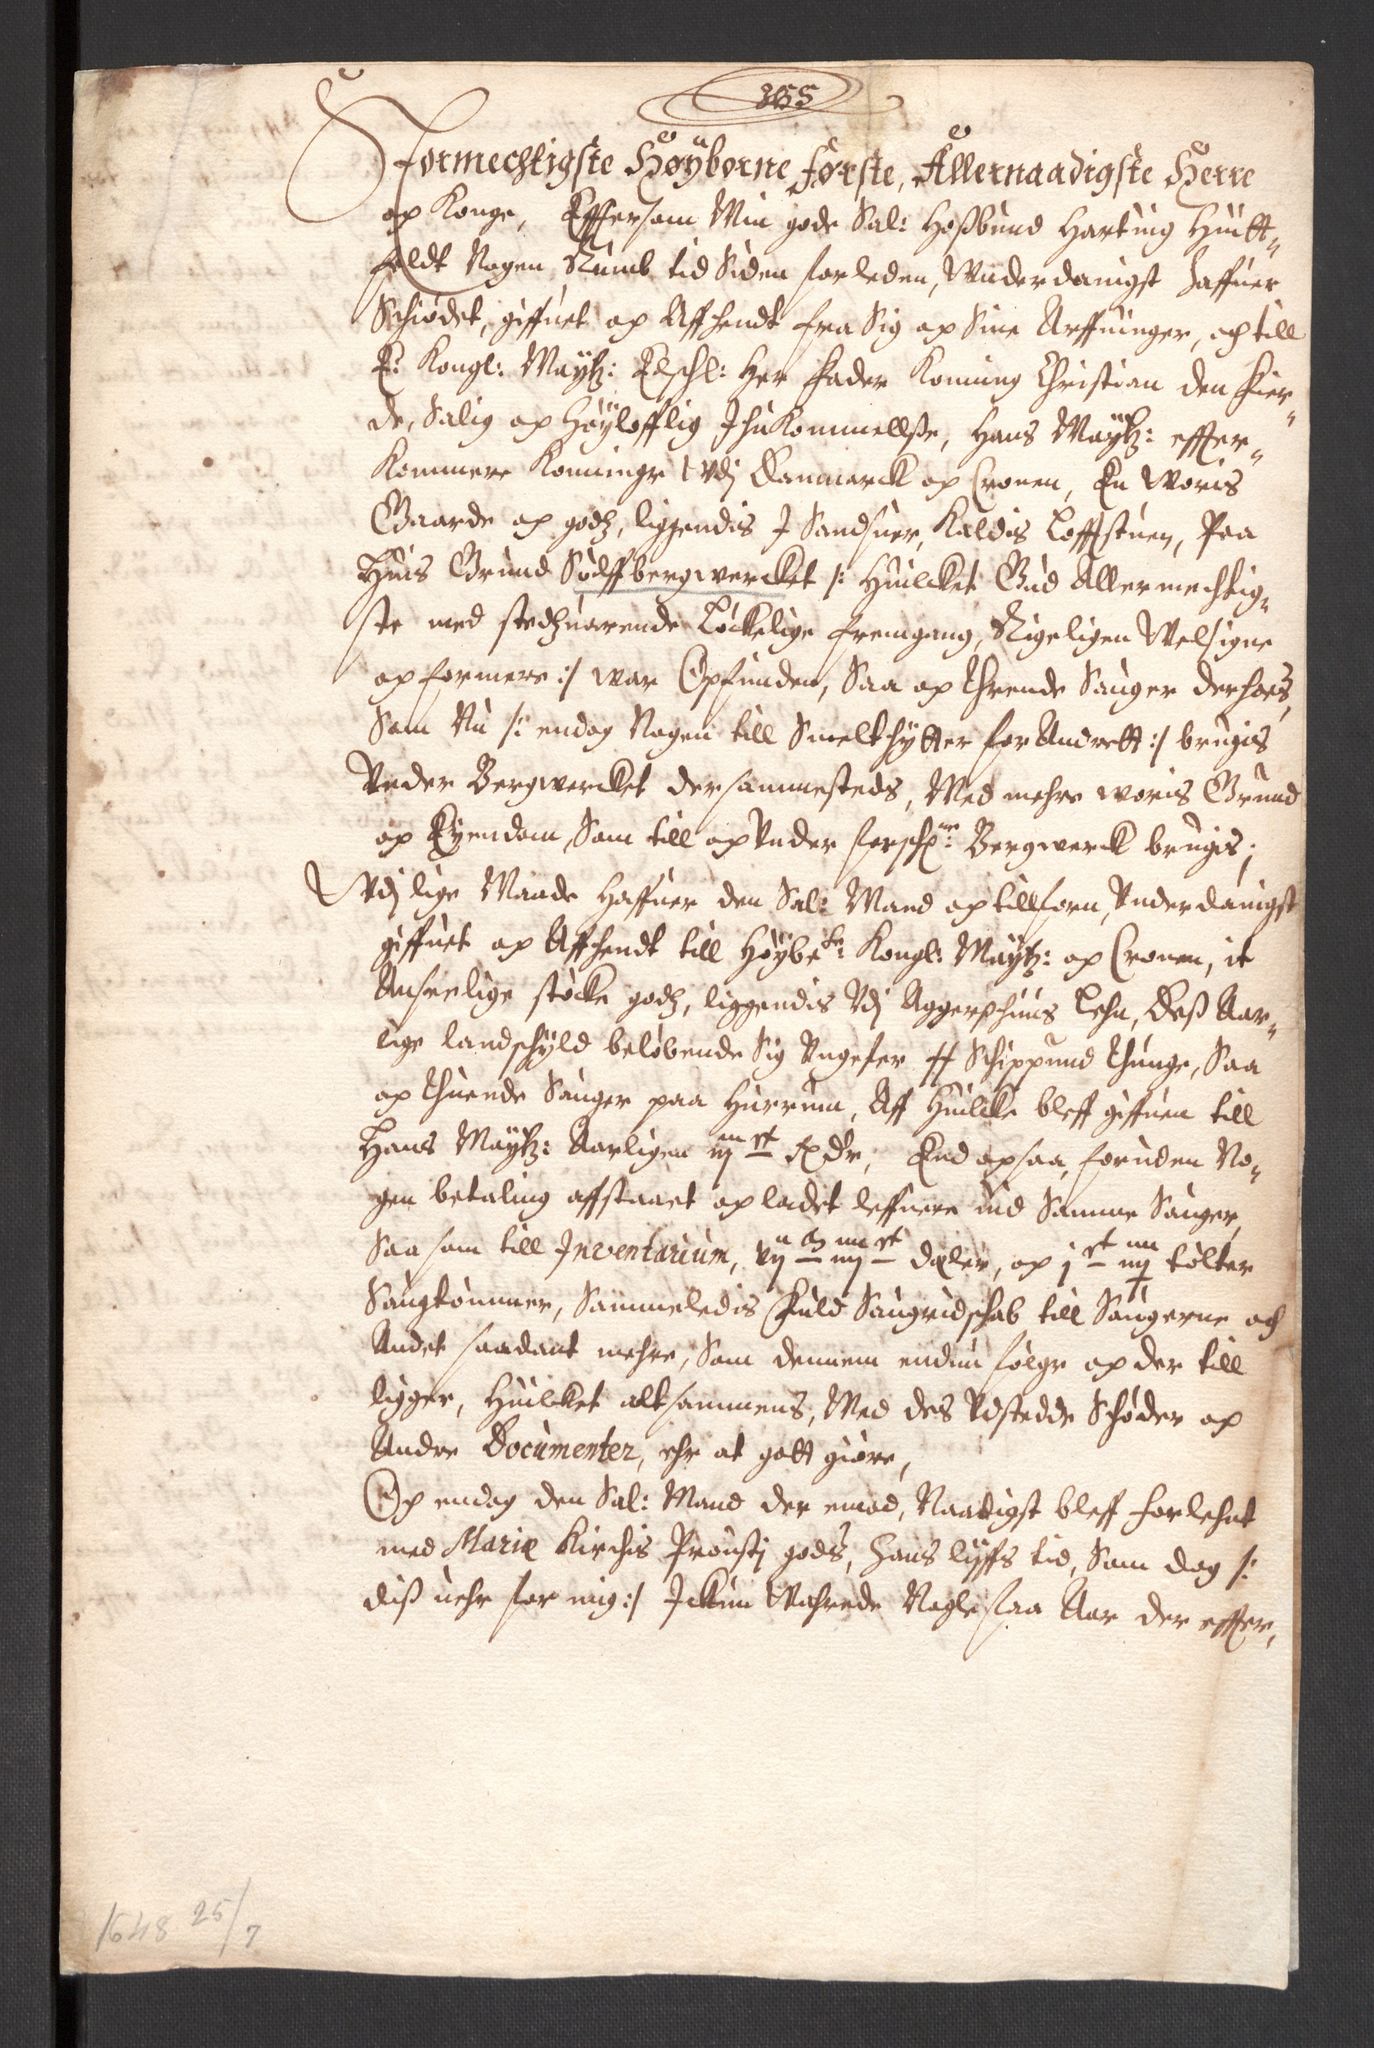 Stormechtigste Høÿborne Første, Allernaadigste Herre
och Konge, Effttersom Min gode Sal: Hoßbund Hartuig Huitt-
feldt Nogen Rumb tid Siden forleden, Wnderdanigst Haffuer
Schiødet, giffuet og Affhendt fra Sig og Sine Arffuinger, och till
E: Kongl: Maÿtz: Elschl: Her Fader Konning Christian den Fier-
de, Salig og Høÿlofflig Ihukommellße, Hans Maÿtz: effter-
kommere Konninge Vdj Danmarck og Cronen, En Woris
Gaarde og godz, liggendis J Sandsuer, Kaldis Lofftstuen, Paa
Huis Grund Sølffbergwercket /: Huilcket Gud Allermechtig-
ste med stedzuarende Løckelige fremgang, Rigeligen Welsigne
og formere :/ war Opfunden, Saa og Threnде Sauger derhoes,
Som Nu /: endog Nogen till Smelthÿtter forAndrett :/ brugis
Vnder Bergwercket dersammesteds, Med mehre woris Grund
og Eyendom, Som till og Vnder forsch:ne Bergwerck brugis;
Vdj lige Maade Haffuer den Sal: Mand og tillforn, Vnderdanigst
giffuet og Affhendt till Høÿbe:te Kongl: Maÿtz: og Cronen, it
Anseelige støcke godz, liggendis Vdj Aggershuus Lehn, Deß Aar-
lige landschÿld beløbende Sig Vngefer Schippund Thunge, Saa
og Thuende Sauger paa Hurrum, Aff Huilcke bleff giffuen till
Hans Maÿtz: Aarligen Rdr, End ogsaa, foruden No-
gen betaling affstaaet og ladet leffuere med Samme Sauger,
Saa som till Inventarium, daler, og tolter
Saugtømmer, Sammeledis Fuld Saugridschab till Saugerne och
Andet saadant mehre, Som dennem endnu følge og der till
ligger, Huilcket altsammens, Med des Vdstedde Schøder og
Andre Documenter, ehr at gott giøre,
Og endog den Sal: Mand der emod, Naadigst bleff forlehnt
med Mariæ Kirchis Prousti gods, Hans lÿffs tid, Som dog /:
diß uehr for mig :/ Ickun Wahrede Nogle faa Aar der effter,
1648 25/7